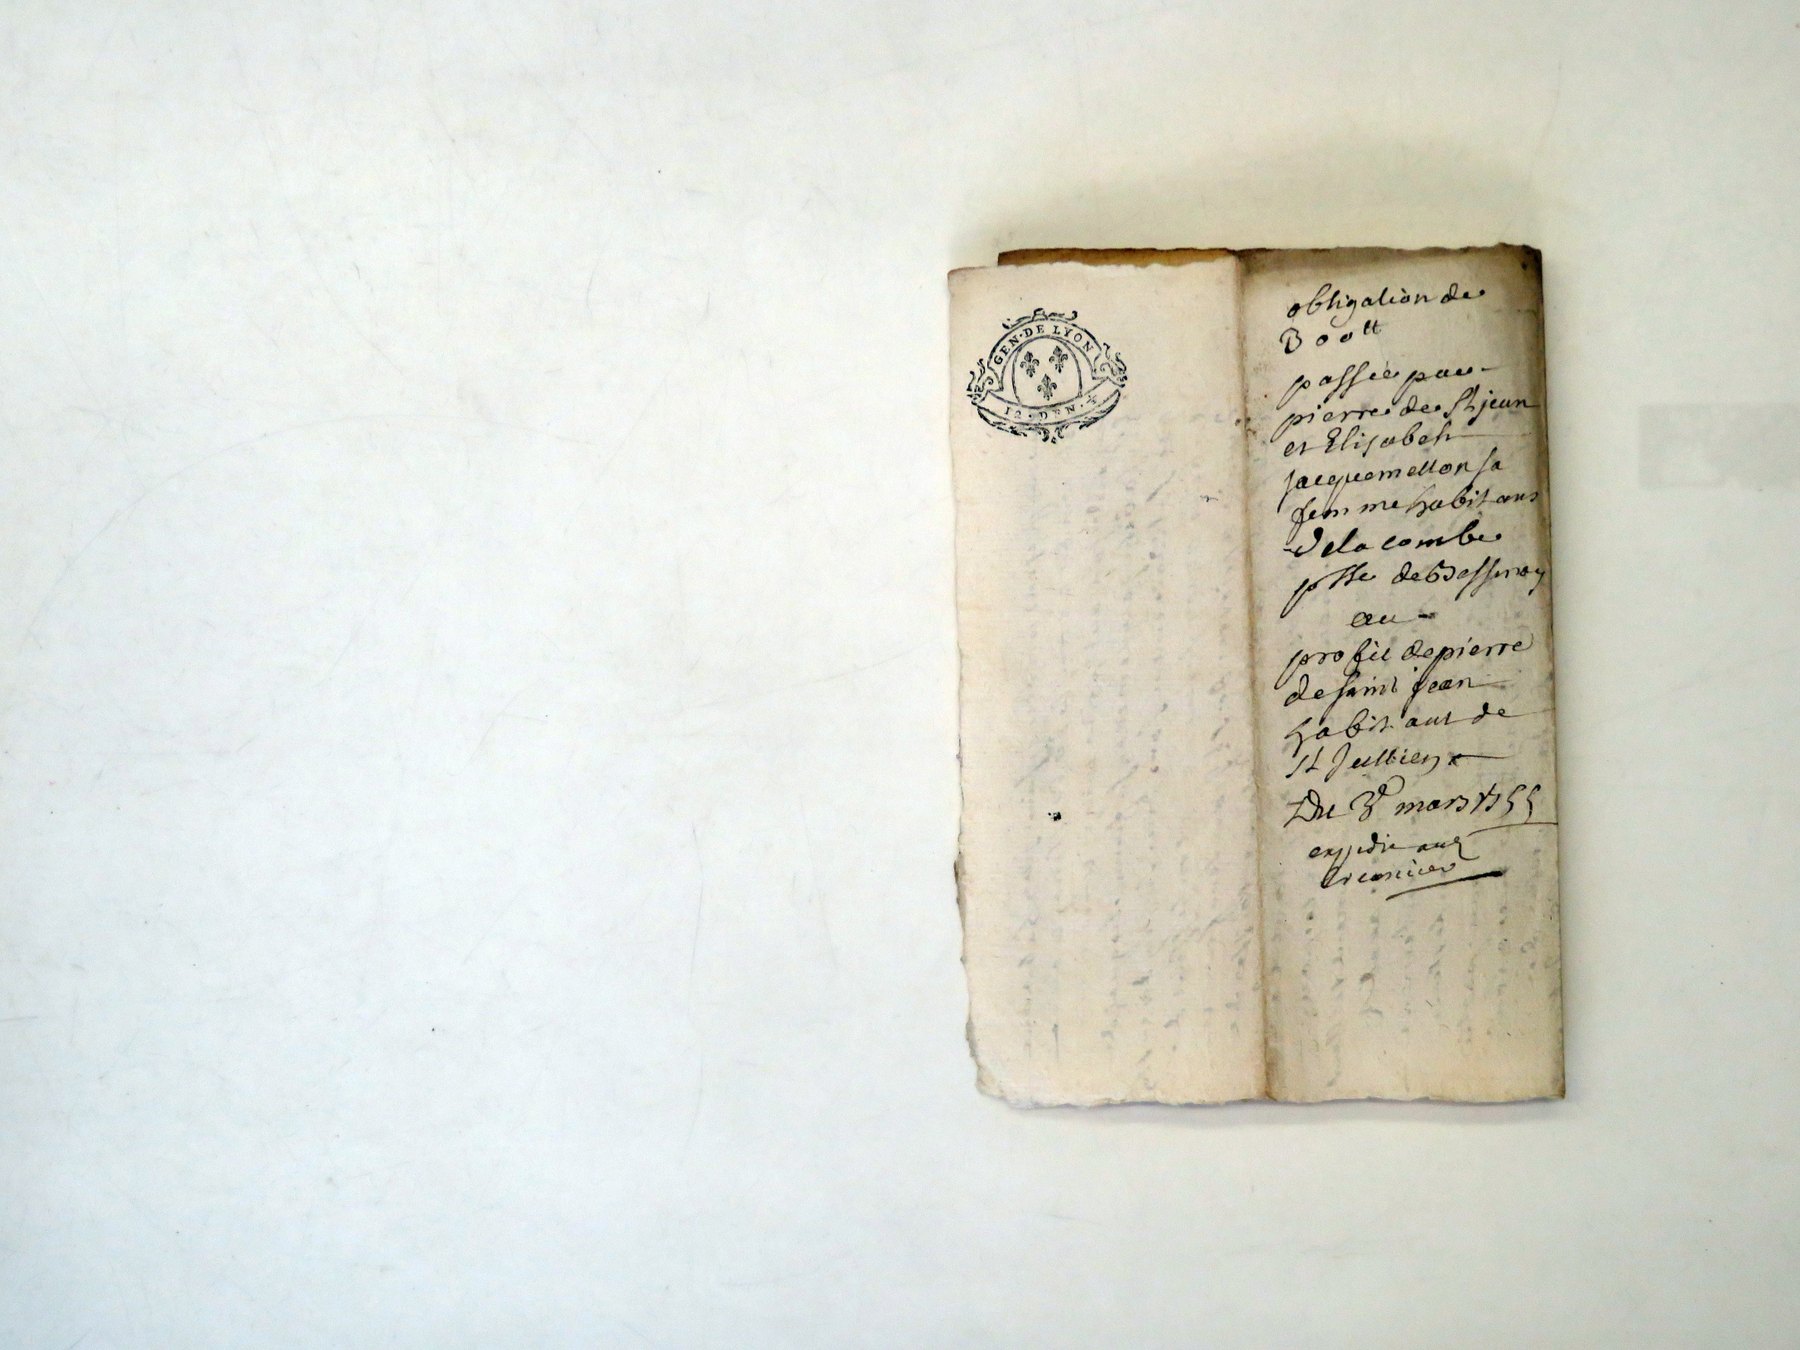 GEN·DE LYON
12·DEN·
obligation de
300tt
passée par
pierre de St jean
et Elisabeth
Jacquemetton sa
femme habitans
dela combe
psse de Bessenay
au
profit de pierre
de saint jean
habitant de
St Jullien
Du 3e mars 1755
expedie au
creancier